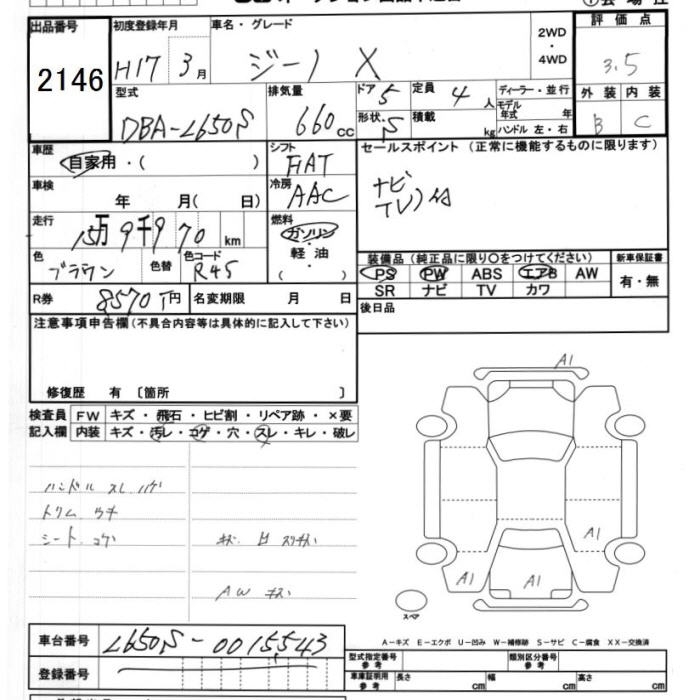 出品番号 初度登録年月 車名・グレード 2WD ・ 4WD 評価点
2146 H17 3月 ジーノ X 3.5
型式 排気量 ドア 5 定員 4人 ディーラー・並行 外装 内装
DBA-L650S 660cc 形状 S 積載 kg モデル年式 年 B C
ハンドル 左・右
車歴 シフト セールスポイント (正常に機能するものに限ります)
自家用・( ) FIAT
車検 冷房 ナビ
年 月( 日) AAC TV)付
走行 燃料
15万9千970km ガソリン
色 色替 色コード 軽油 装備品 (純正品に限り○をつけてください) 新車保証書
ブラウン R45 ( ) PS PW ABS エアB AW 有・無
SR ナビ TV カワ
R券 8570円 名変期限 月 日 後日品
注意事項申告欄 (不具合内容等は具体的に記入して下さい)
修復歴 有 〔箇所 〕
A1
検査員 FW キズ・飛石・ヒビ割・リペア跡・×要
記入欄 内装 キズ・汚レ・コゲ・穴・スレ・キレ・破レ
ハンドル スレ ハゲ
トリム
シート コゲ
A1
AW キズ
A1 A1
スペア
A-キズ E-エクボ U-凹み W-補修跡 S-サビ C-腐食 XX-交換済
車台番号 L650S-0015543
型式指定番号 参考 類別区分番号 参考
登録番号 車庫証明用 参考 長さ cm 幅 cm 高さ cm